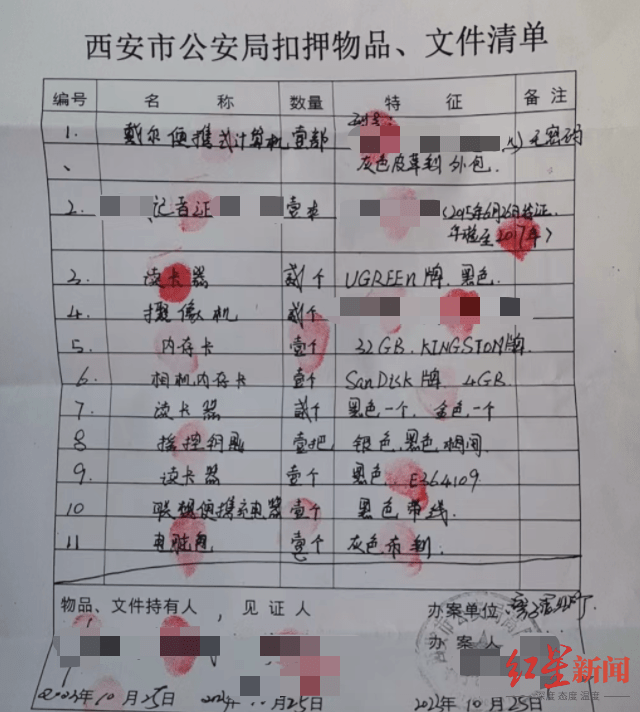 西安市公安局扣押物品、文件清单
编号 名 称 数量 特 征 备 注
1. 戴尔便携式计算机 壹部 型号: 无密码
、 灰色皮革制外包.
2. 记者证 壹本 (2015年6月26日发证.
年检至2017年)
3. 读卡器 贰个 UGREEN牌.黑色.
4. 摄像机 贰个
5. 内存卡 壹个 32GB.KINGSTON牌.
6. 相机内存卡 壹个 SanDisk牌.4GB.
7. 读卡器 贰个 黑色一个,金色一个
8 壹把 银色.黑色相间
9. 读卡器 壹个 黑色. E364109
10 联想便携充电器 壹个 黑色带线.
11 电脑包 壹个 灰色布制.
物品、文件持有人 , 见 证 人 办案单位
办 案 人
2023年10月25日 25日 2023年10月25日
西安市公安局
红星新闻
深度 态度 温度